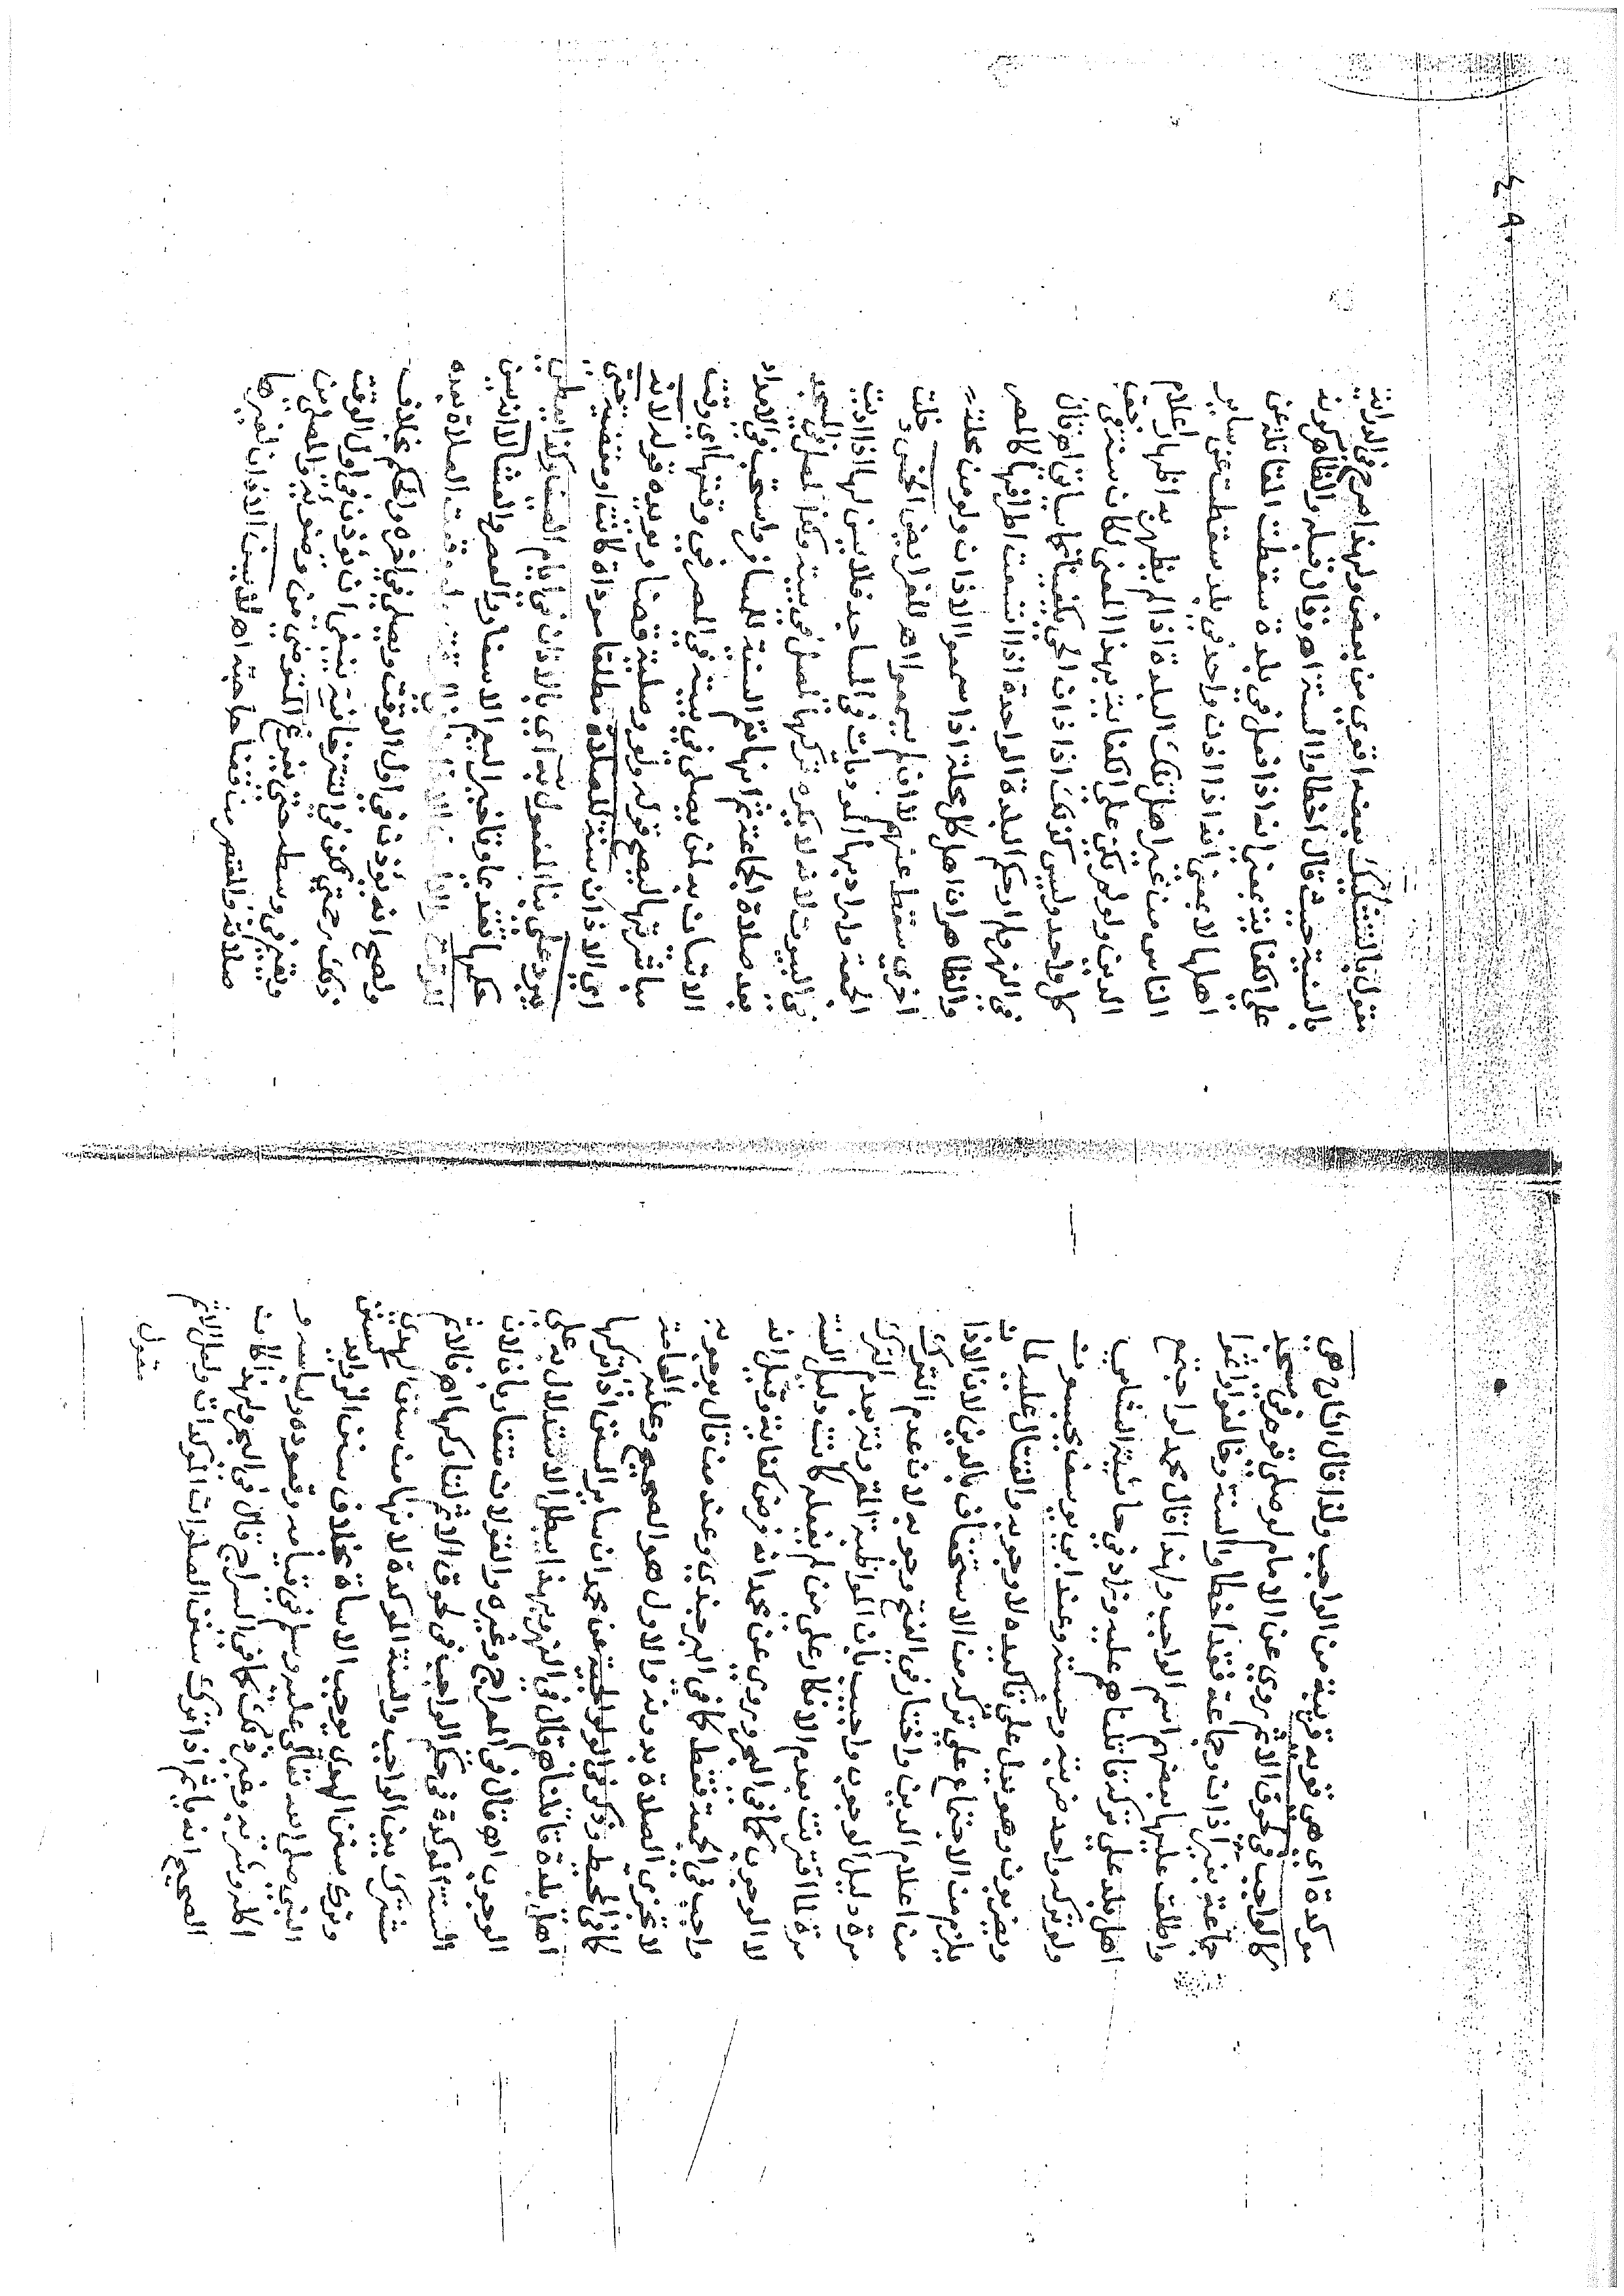 موكدة اي هي قوية قريبة من الواجب ولذا قال الشارح هي
كالواجب في لحوق الاثم روي عن الامام لو صلى قوم في مسجد
جماعة بغير اذان وجماعة فقد اخطاوا السنة وخالفوا واثموا
واطلقت عليها بعضهم اسم الواجب ولهذا قال محمد لو اجتمع
اهل بلد على تركه قاتلناهم عليه وزاد في حاشية الشلبي
ولو تركه واحد ضربته وحبسته وعند ابي يوسف يحبسون
ويضربون وهو يدل على تاكيده لا وجوبه والقتال عليه لما
يلزم من الاجتماع على تركه من الاستخفاف بالدين لان الاذان
من اعلام الدين واختار في الفتح وجوبه لان عدم الترك
مرة دليل الوجوب واجيب بان المواظبة المقرونة بعدم الترك
مرة لما اقترنت بعدم الانكار على من لم يفعله كانت دليل السنة
لا الوجوب كما في البحر وروي عن محمد انه فرض كفاية وقيل انه
واجب في الجمعة فقط كما في البرجندي وعند من قال بوجوبه
لا تجزي الصلاة بدونه والاول هو الصحيح وعليه العامة
كما في المحيط وذكر في الولوالجية عن محمد ان ساير السنن اذا تركها
اهل بلدة قاتلناهم قال في النهر وبهذا يبطل الاستدلال به على
الوجوب اه قال في المعراج وغيره والقولان متقاربان لان
السنة الموكدة في حكم الواجب في لحوق الاثم لتاركها اه فالاثم
مشترك بين الواجب والسنة الموكدة لانها من سنن الهدى
وترك سنن الهدى يوجب الاساة بخلاف سنن الزوايد كسنن
النبي صلى الله تعالى عليه وسلم في قيامه وقعوده ولباسه و
اكله وشربه وغير ذلك كما في السراج قال في البحر ولهذا كان
الصحيح انه ياثم اذا ترك سنن الصلوات الموكدات ولعل الاثم
مقول
٤٩
مقول بالتشكيك بعضه اقوي من بعض ولهذا صرح في الدراية
بالسنية حيث قال اخطاوا السنة اه وقال قبله والظاهر كونه
على الكفاية بمعنى انه اذا فعل في بلدة سقطت المقاتلة عن
اهلها لا بمعنى انه اذا اذن واحد في بلد سقطت عن ساير
الناس من غير اهل تلك البلدة اذا لم يظهر به اظهار اعلام
الدين ولو لم يكن على الكفاية بهذا المعنى لكان سنة في حق
كل واحد وليس كذلك اذ اذان الحي يكفينا كما سياتي اه قال
في النهر ولم ار حكم البلدة الواحدة اذا اتسعت اطرافها كالمصر
والظاهر ان اهل كل محلة اذا سمعوا الاذان ولو من محلة
اخري سقط عنهم لا ان لم يسمعوا اه للفرايض الخمس دخلت
الجمعة والمراد بها المودات في المساجد فلا يسن لها اذا اديت
في البيوت لانه لا يكره تركها لمصل في بيته وكذا لمصل في المسجد
بعد صلاة الجماعة ثم انها تعم السنة للمسافر واستحب في الامداد
الاتيان به لمن يصلى في بيته في المصر في وقتها اي وقت
مباشرتها ليصح قوله ولو وصلية قضا ويويده قوله لانه
اي الاذان سنة للصلاة مطلقا موداة كانت او مقضية حتى
يبرد على بنا المفعول به اي بالاذان في ايام الصيف وكذا يعطى
حكمها تقديما وتاخيرا ليعم الاسفار والعصر والعشا لا انه يسن
للوقت
والصح انه يؤذن في اول الوقت ويصلى في اخره والحكم بخلاف
ذلك رحمتي لكن في التترخانية ينبغي ان يؤذن في اول الوقت
ويقيم في وسطه حتى يفرغ المتوضي من وضويه والمصلى من
صلاته والمعتصر من قضا حاجته اه لا يسن الاذان لغيرها